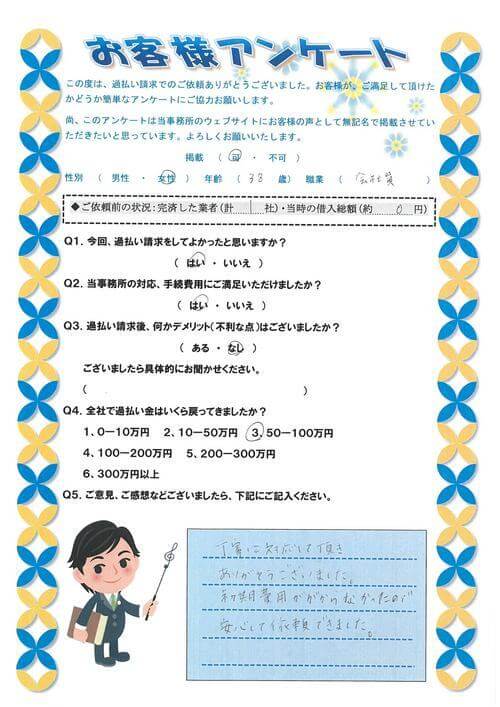 お客様アンケート
この度は、過払い請求でのご依頼ありがとうございました。お客様が、ご満足して頂けた
かどうか簡単なアンケートにご協力お願いします。
尚、このアンケートは当事務所のウェブサイトにお客様の声として無記名で掲載させてい
ただきたいと思っています。よろしくお願いいたします。
掲載 ( 可 ・ 不可 )
性別 ( 男性 ・ 女性 ) 年齢 ( 38 歳) 職業 ( 会社員 )
◆ご依頼前の状況:完済した業者(計 1 社)・当時の借入総額(約 0 円)
Q1. 今回、過払い請求をしてよかったと思いますか?
( はい ・ いいえ )
Q2. 当事務所の対応、手続費用にご満足いただけましたか?
( はい ・ いいえ )
Q3. 過払い請求後、何かデメリット(不利な点)はございましたか?
( ある ・ なし )
ございましたら具体的にお聞かせください。
( )
Q4. 全社で過払い金はいくら戻ってきましたか?
1、0-10万円 2、10-50万円 3、50-100万円
4、100-200万円 5、200-300万円
6、300万円以上
Q5. ご意見、ご感想などございましたら、下記にご記入ください。
丁寧に対応して頂き
ありがとうございました。
初期費用がかからなかったので
安心して依頼できました。